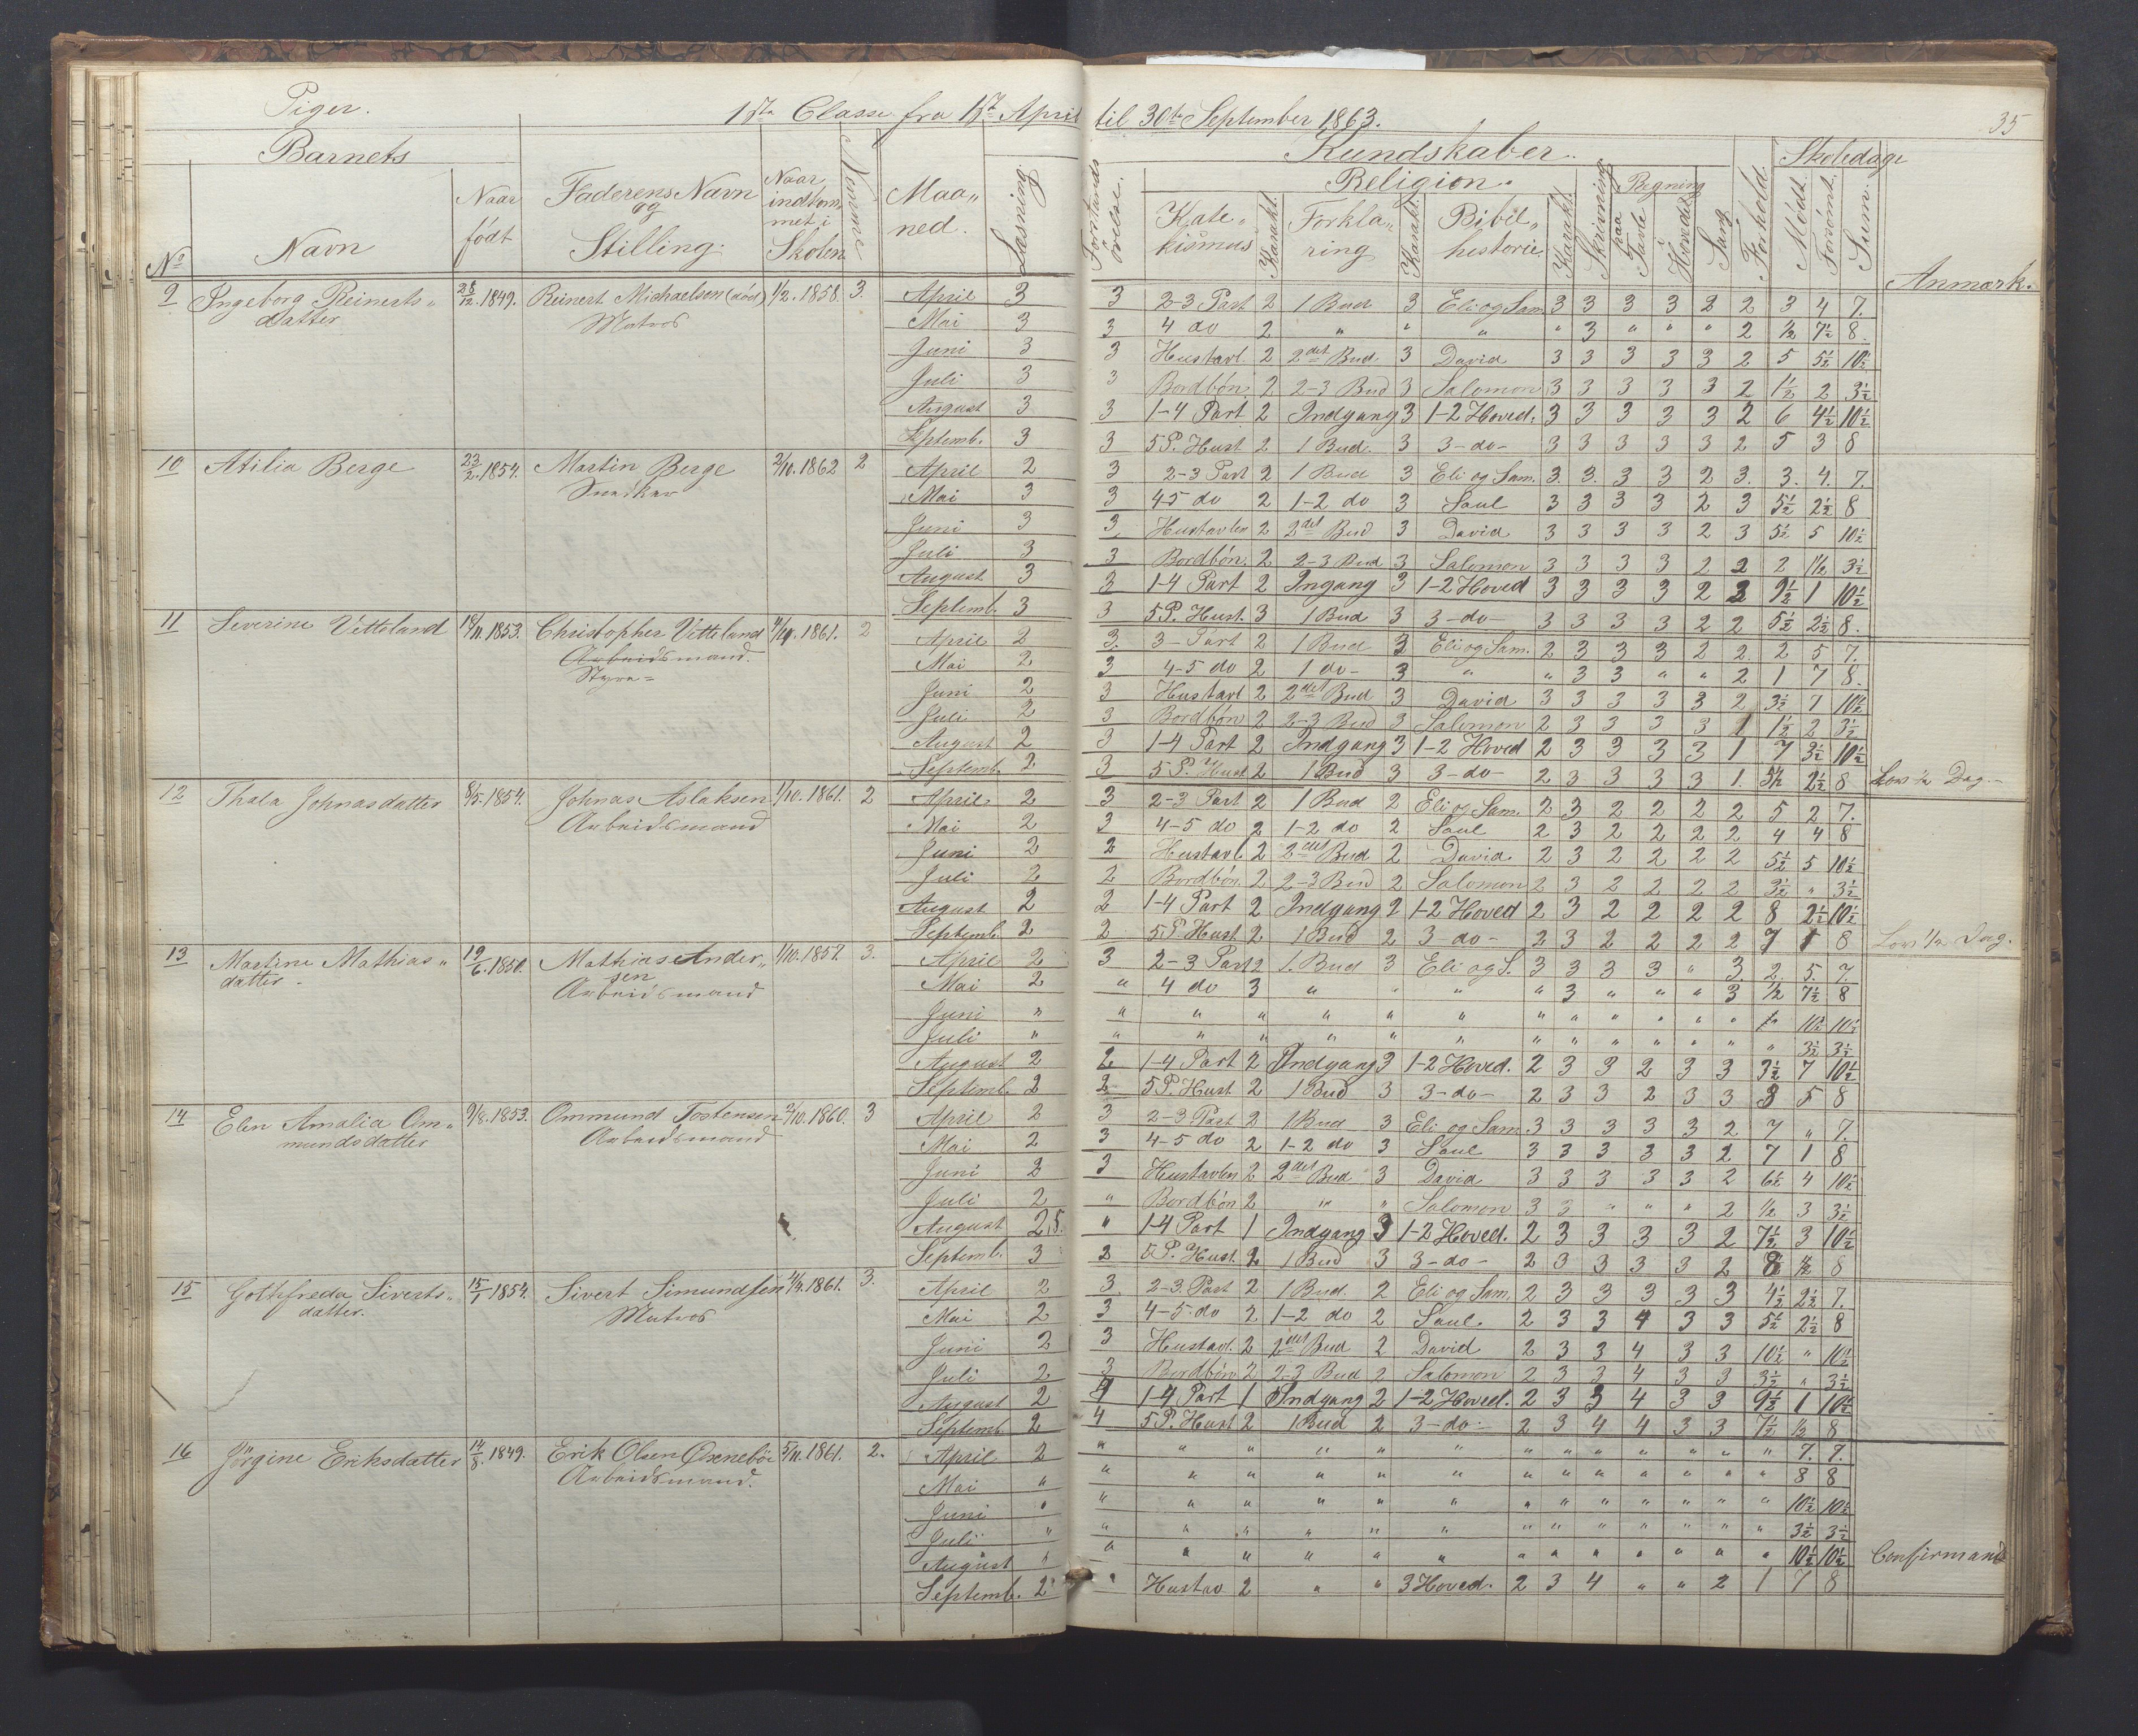 Piger. 1ste Classe fra 1st April til 30te September 1863. 35
Barnets Kundskaber. Skoledage
No Navn Naar født Faderens Navn og Stilling. Naar indkommet i Skolen Maaned. Læsning Forstandsøvelse. Religion. Katekismus Karakt. Forklaring Karakt. Bibelhistorie Karakt. Skrivning Regning paa Tavle i Hovedet Sang Forhold Mødt. Forsømt. Sum. Anmærk.
9 Ingeborg Reinerts„ 28/12.1849. Reinert Michaelsen (død) 1/2.1858. 3. April 3 3 2-3 Part 2 1 Bud 3 Eli og Sam 3 3 3 3 2 2 3 4 7.
datter Matros Mai 3 3 4 do 2 " " " " 3 " " " 2 ½ 7½ 8.
Juni 3 3 Hustavl. 2 2det Bud 3 David 3 3 3 3 3 2 5 5½ 10½
Juli 3 3 Bordbøn. 2 2-3 Bud 3 Salomon 3 3 3 3 3 2 1½ 2 3½
August 3 3 1-4 Part 2 Indgang 3 1-2 Hoved. 3 3 3 3 3 2 6 4½ 10½
Septemb. 3 3 5 P. Hust 2 1 Bud. 3 3-do- 3 3 3 3 3 2 5 3 8
10 Atilia Berge 23/2.1854. Martin Berge 2/10.1862 2 April 2 3 2-3 Part 2 1 Bud 3 Eli og Sam. 3. 3. 3 3 2 3. 3. 4. 7.
Snedker Mai 3 3 4-5 do 2 1-2 do 3 Saul 3 3 3 3 2 3 5½ 2½ 8
Juni 3 3 Hustavlen 2 2det Bud 3 David 3 3 3 3 2 3 5½ 5 10½
Juli 3 3 Bordbøn. 2 2-3 Bud 3 Salomon 3 3 3 3 2 2 2 1½ 3½
August 3 3 1-4 Part 2 Ingang 3 1-2 Hoved 3 3 3 3 2 2 9½ 1 10½
Septemb. 3 3 5 P. Hust. 3 1 Bud 3 3-do- 3 3 3 3 2 2 5½ 2½ 8.
11 Severine Vitteland 18/11.1853. Christopher Vitteland 1861. 2 April 2 3. 3-Part 2 1 Bud 3 Eli og Sam. 2 3 3 3 2 2 2 5 7.
Arbeidsmand. Mai 2 3 4-5 do 2 1 do- 3 " " 3 3 " " 2 1 7 8.
Styr=
Juni 2 3 Hustavl 2 2det Bud 3 David 3 3 3 3 3 2 3½ 7 10½
Juli 2 3 Bordbøn 2 2-3 Bud 3 Salomon 2 3 3 3 3 1 1½ 2 3½
August 2 3 1-4 Part 2 Indgang 3 1-2 Hoved 2 3 3 3 3 1 7 3½ 10½
Septemb. 2 3 5 P. Hust 2 1 Bud 3 3-do- 2 3 3 3 3 1. 5½ 2½ 8 Lov ½ Dag.-
12 Thala Johnasdatter 8/5.1854. Johnas Aslaksen 1/10.1861. 2 April. 2 3 2-3 Part 2 1 Bud 2 Eli og Sam. 2 3 2 2 2 2 5 2 7.
Arbeidsmand Mai 2 3 4-5 do 2 1-2 do 2 Saul 2 3 2 2 2 2 4 4 8
Juni 2 2 Hustavl. 2 2det Bud 2 David. 2 3 2 2 2 2 5½ 5 10½
Juli 2 2 Bordbøn. 2 2-3 Bud 2 Salomon 2 3 2 2 2 2 3½ " 3½
August 2 2 1-4 Part 2 Indgang 2 1-2 Hoved 2 3 2 2 2 2 8 2½ 10½
Septemb. 2 2 5 P Hust 2 1 Bud 2 3-do- 2 3 2 2 2 2 7 1 8 Lov ½ Dag.
13 Martine Mathias„ 19/6.1850. Mathias Ander„ 1/10.1857. 3. April 2 3 2-3 Part 2 1. Bud 3 Eli og S. 3 3 3 3 " 3 2 5. 7.
datter. sen Mai 2 " 4 do 3 " " " " 3 " " " 3 ½ 7½ 8
Arbeidsmand
Juni " " " " " " " " " " " " " 10½ 10½
Juli " " " " " " " " " " " " " " 3½ 3½
August 2 2 1-4 Part 2 Indgang 3 1-2 Hoved. 2 3 3 2 3 3 3½ 7 10½
Septemb. 2 2 5 P. Hust 2 1 Bud 3 3-do- 2 3 3 2 3 3 3 5 8
14 Elen Amalia Om„ 9/8.1853. Ommund Tostensen 2/10.1860. 3 April 2 3 2-3 Part 2 1 Bud 3 Eli og Sam. 3 3 3 3 3 2 7 " 7.
mundsdatter Arbeidsmand Mai 2 3 4-5 do 2 1-2 do 3 Saul 3 3 3 3 3 2 7 1 8
Juni 2 3 Hustavlen 2 2det Bud 3 David 3 3 3 3 3 2 6½ 4 10½
Juli 2 " Bordbøn 2 " " Salomon 3 3 " " " 2 ½ 3 3½
August 2,5. " 1-4 Part 1 Indgang 3 1-2 Hoved. 2 3 3 3 3 2 7½ 3 10½
Septemb. 3 2 5 P. Hust. 2 1 Bud 3 3-do- 2 3 3 3 3 2 ½ 8
15 Gothfreda Siverts„ 15/1 1854. Sivert Simundsen 1861. 3. April 2 3. 2-3. Part 2 1 Bud. 2 Eli og Sam. 2 3 3 3 3 3 4½ 2½ 7.
datter. Matros Mai 2 3 4-5 do 2 1-2 do 2 Saul. 2 3 3 4 3 3 5½ 2½ 8
Juni 2 3 Hustavl. 2 2det Bud 2 David 2 3 3 4 3 3 10½ " 10½
Juli 2 3 Bordbøn 2 2-3 Bud 2 Salomon 2 3 3 4 3 3 3½ " 3½
August 2 4 1-4 Part 1 Indgang 2 1-2 Hoved. 2 3 3 4 3 3 9½ 1 10½
Septemb 2 4 5 P. Hust 2 1 Bud 2 3-do- 2 3 4 4 3 3 7½ ½ 8
16 Jörgine Eriksdatter 14/8.1849. Erik Olsen Oxnebøe 5/11.1861. 2. April 2 " " " " " " " " " " " " " 7. 7.
Arbeidsmand. Mai " " " " " " " " " " " " " " 8 8
Juni " " " " " " " " " " " " " " 10½ 10½
Juli " " " " " " " " " " " " " " 3½ 3½
August " " " " " " " " " " " " " " 10½ 10½ Confirmand
Septemb. 2 " Hustav 2 " " 3 Hoved. 2 3 4 " " 2 1 7 8